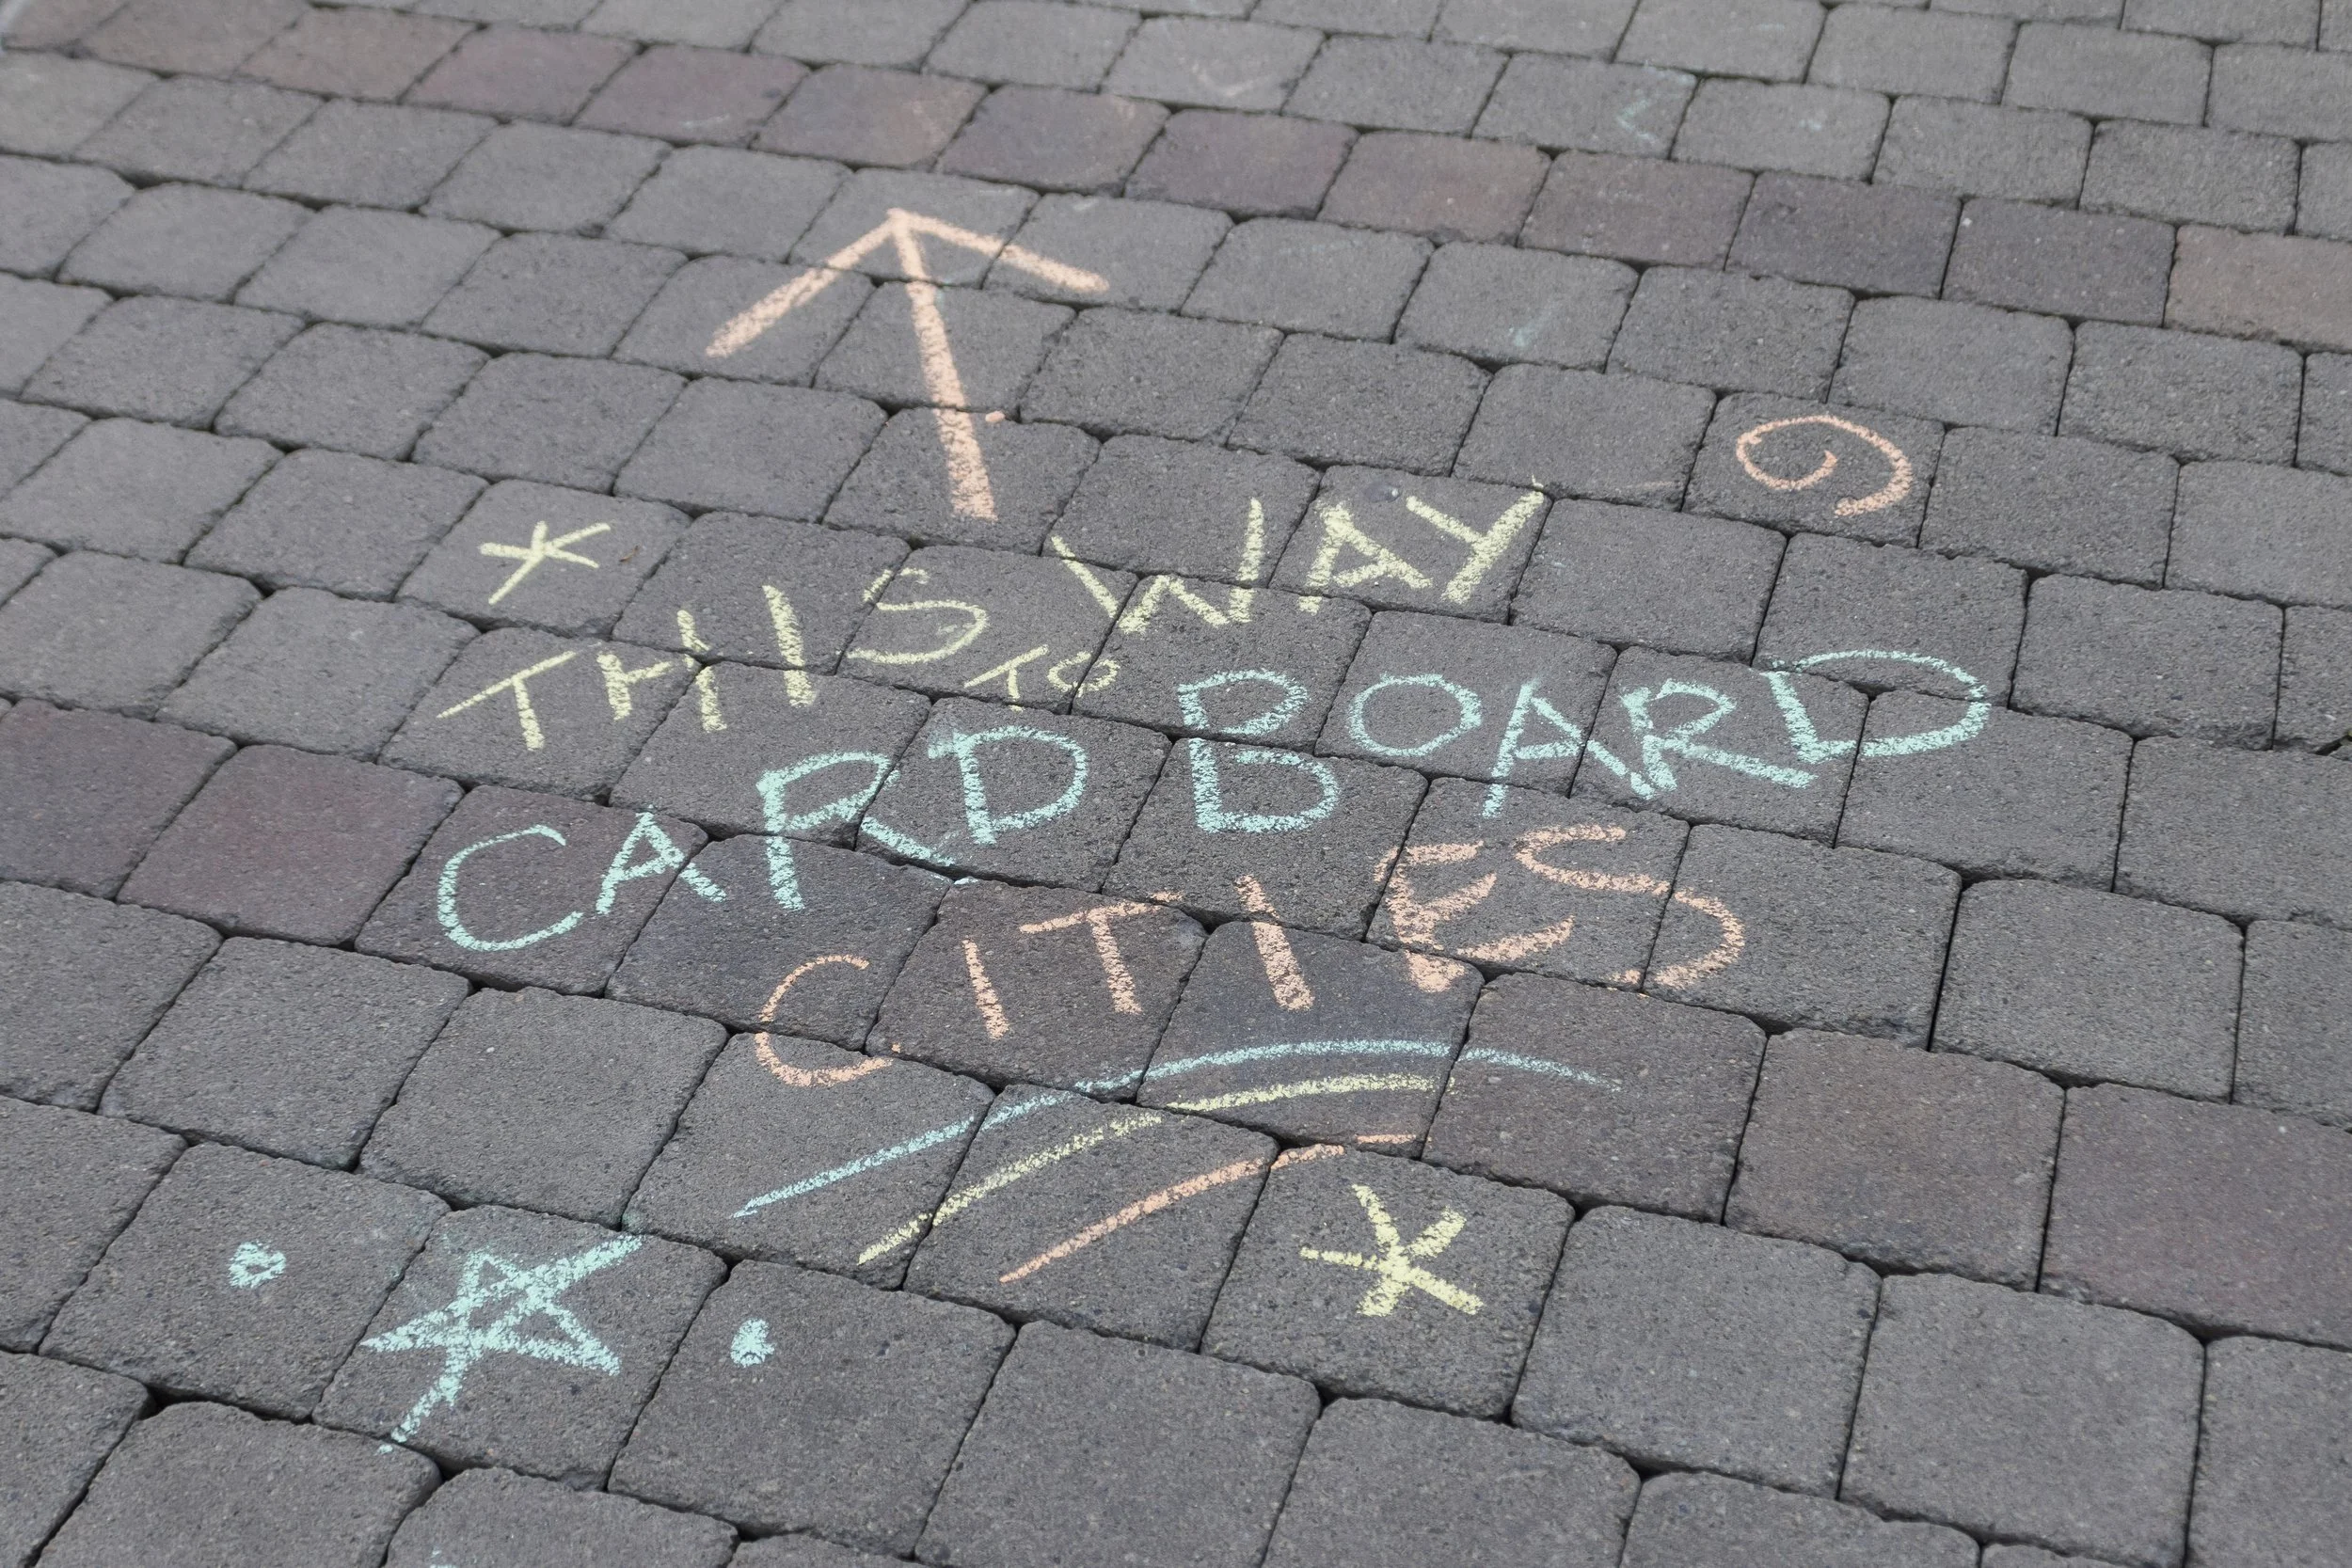 THIS WAY
TO
CARD BOARD
CITIES